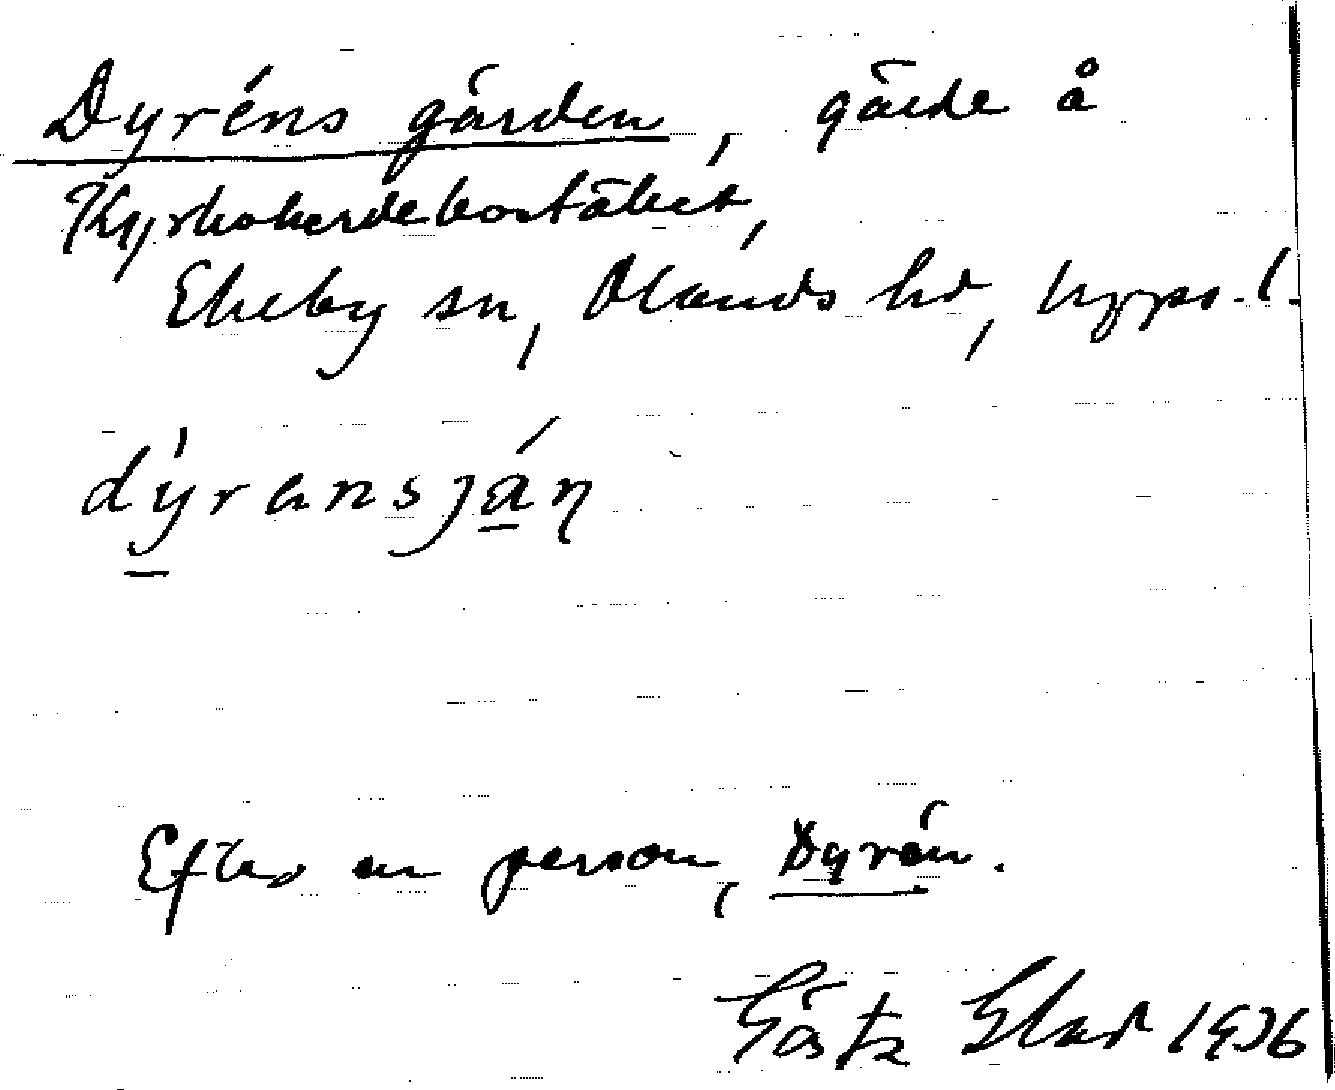 Dyréns gården, gärde å
Kyrkoherdebostället,
Ekeby sn, Olands hd, Upps. l.
dýransjá̱n
Efter en person, Dyrén.
Gösta 1936